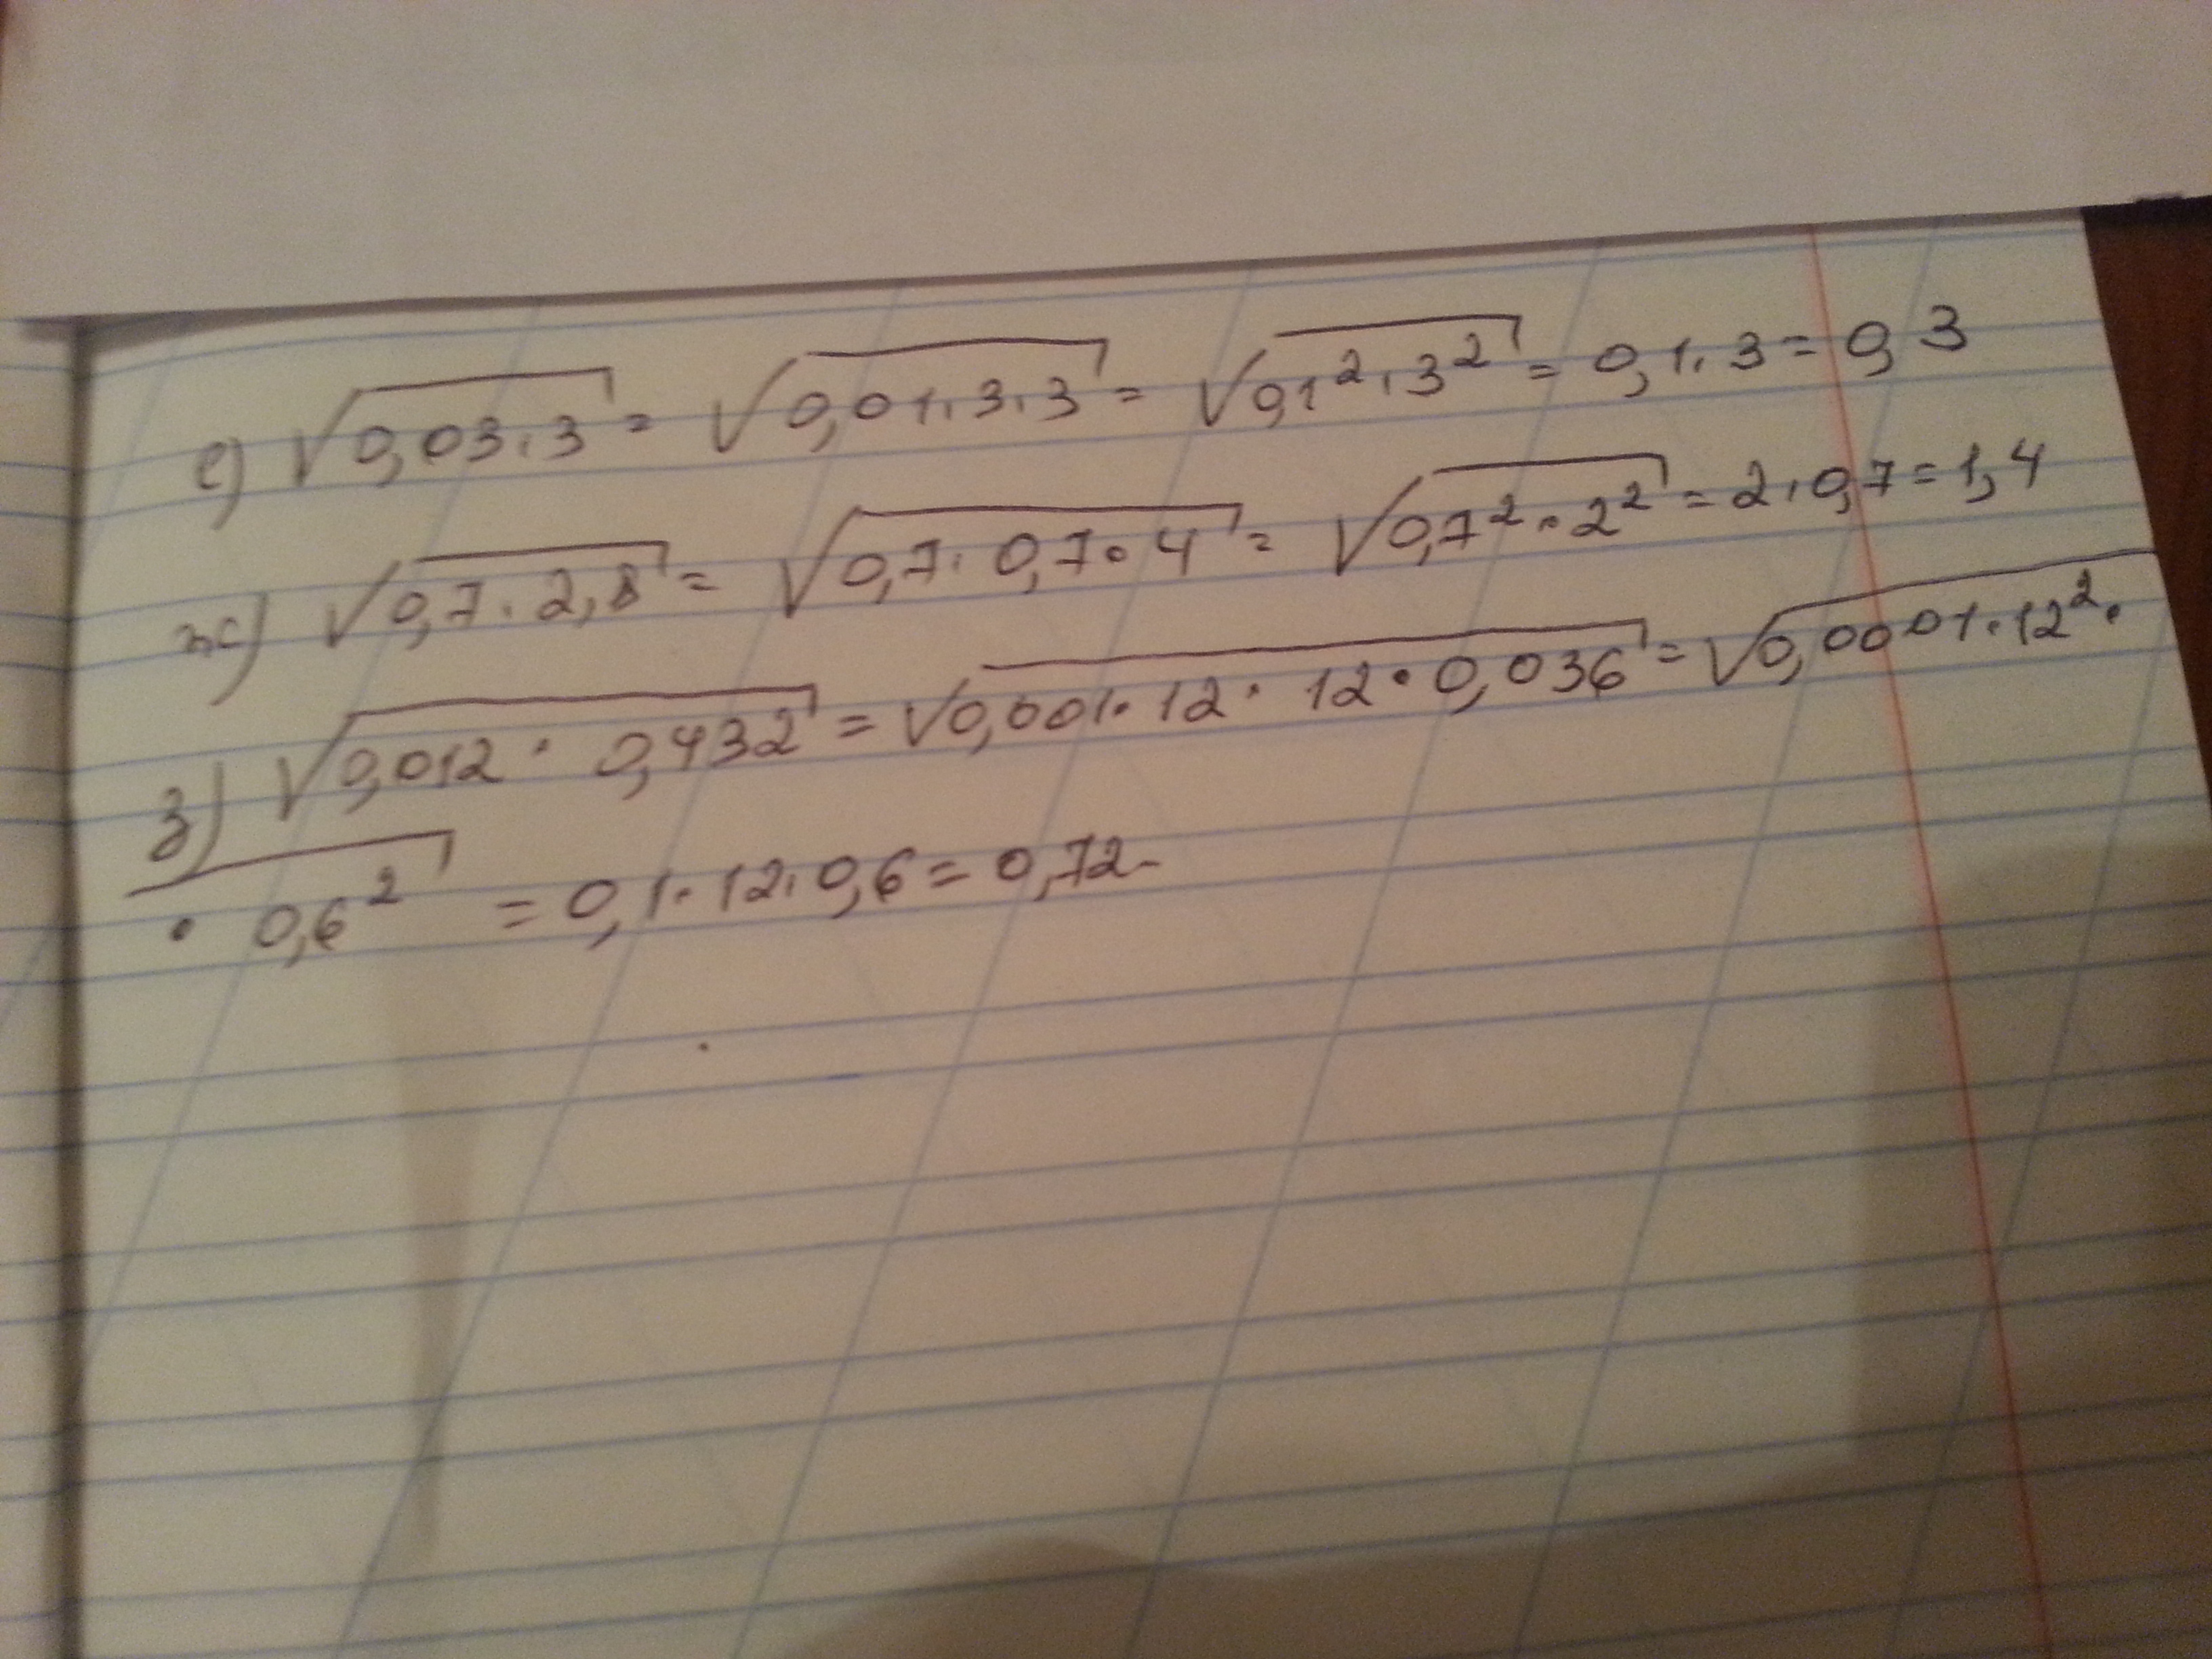 е) √0,03·3 = √0,01·3·3 = √0,1²·3² = 0,1·3 = 0,3
ж) √0,7·2,8 = √0,7·0,7·4 = √0,7²·2² = 2·0,7 = 1,4
з) √0,012·0,432 = √0,001·12·12·0,036 = √0,0001·12²·
·0,6² = 0,1·12·0,6 = 0,72